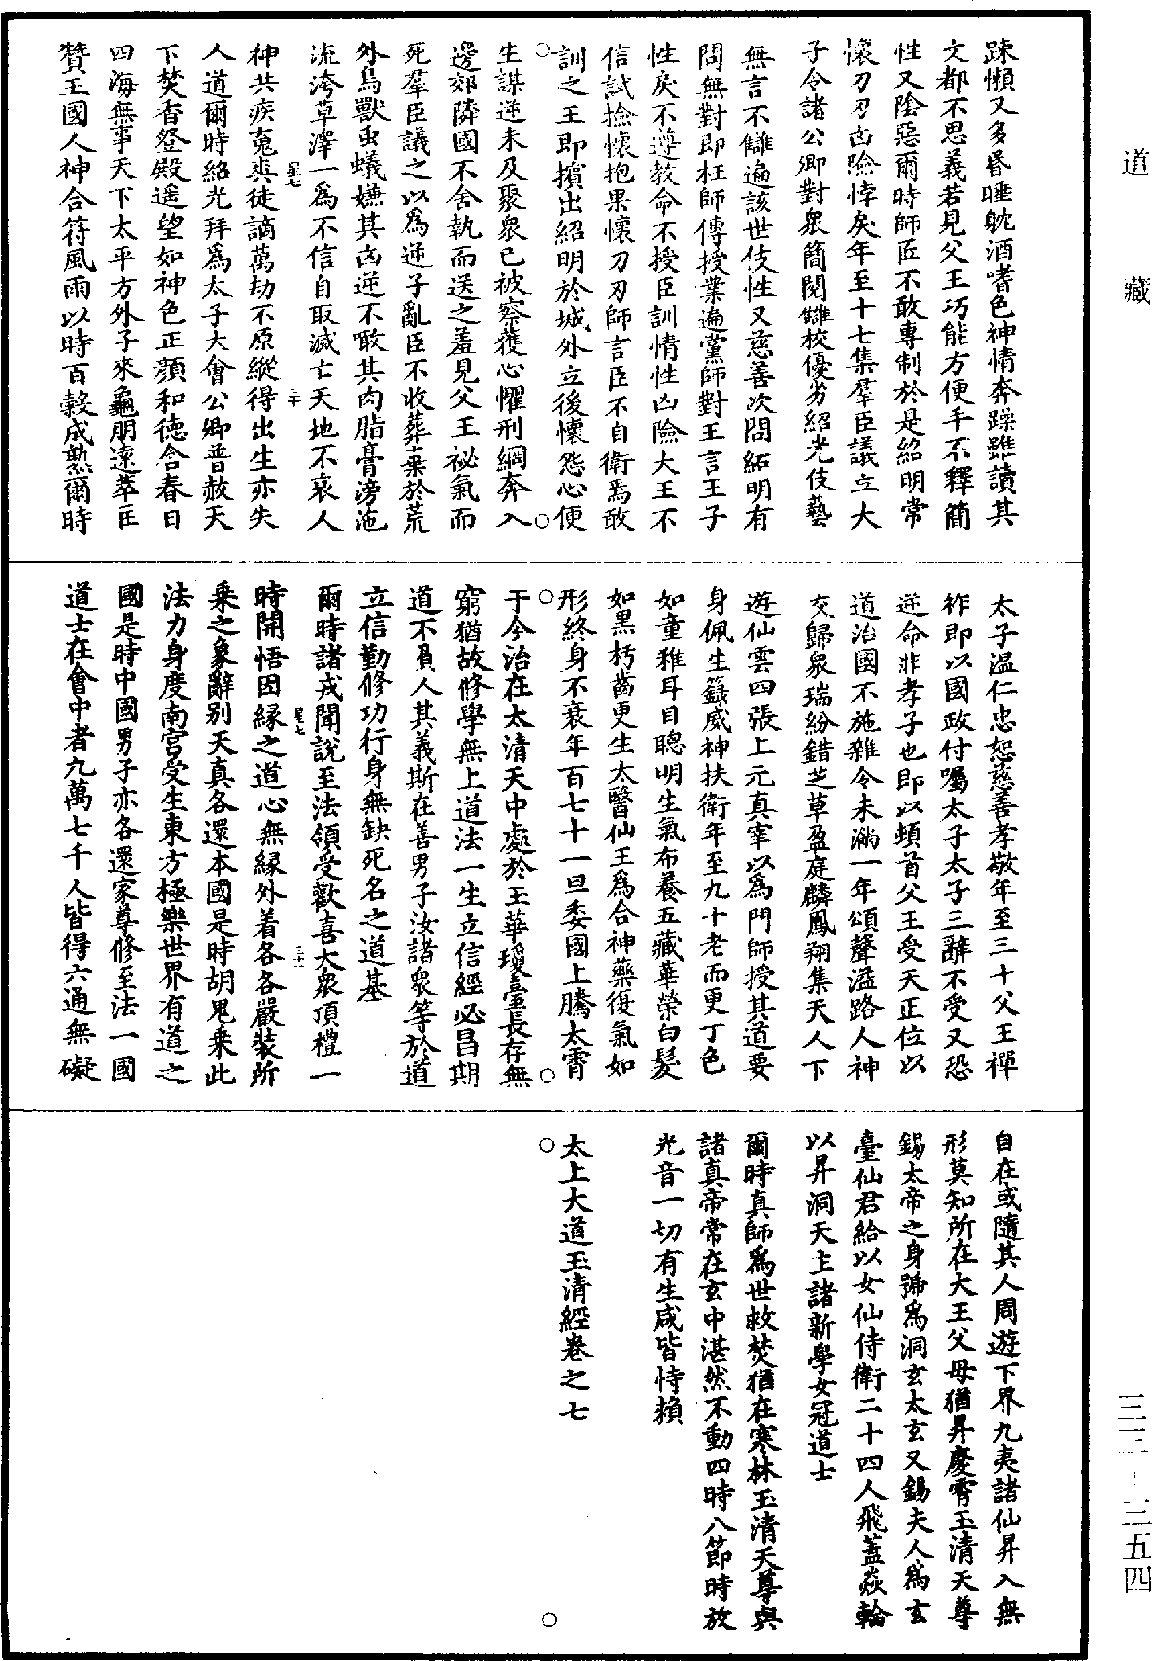 道藏
踈懶又多昏睡躭酒嗜色神情奔躁雖讀其
文都不思義若見父王巧能方便手不釋簡
性又陰惡爾時師匠不敢專制於是紹明常
懷刀刃凶險悖戾年至十七集羣臣議立大
子令諸公卿對衆簡閱讎校優劣紹光伎藝
無言不讎遍該世伎性又慈善次問紹明有
問無對即枉師傳授業遍黨師對王言王子
性戾不遵教命不授臣訓情性凶險大王不
信試撿懷抱果懷刀刃師言臣不自衛焉敢
訓之王即擯出紹明於城外立後懷怨心便
生謀逆未及聚衆已被察獲心懼刑綱奔入
邊郊隣國不舍執而送之羞見父王祕氣而
死羣臣議之以爲逆子亂臣不收葬棄於荒
外鳥獸虫蟻嫌其凶逆不敢其肉脂膏滂沲
流洿草澤一爲不信自取滅亡天地不哀人
星七
三十
神共疾寃喪徒謫萬劫不原縱得出生亦失
人道爾時紹光拜爲太子大會公卿普赦天
下焚香登殿遥望如神色正顔和德合春日
四海無事天下太平方外子來龜朋遠萃臣
贊王國人神合符風雨以時百穀成熟爾時
太子温仁忠恕慈善孝敬年至三十父王禪
祚即以國政付囑太子太子三辭不受又恐
逆命非孝子也即以頓首父王受天正位以
道治國不施雜令未滿一年頌聲溢路人神
交歸衆瑞紛錯芝草盈庭麟鳳翔集天人下
遊仙雲四張上元真宰以爲門師授其道要
身佩生籙威神扶衛年至九十老而更丁色
如童稚耳目聰明生氣布養五藏華榮白髮
如黒朽齒更生太醫仙王爲合神藥復氣如
形終身不衰年百七十一旦委國上騰太霄
于今治在太清天中處於玉華瓊臺長存無
窮猶故修學無上道法一生立信經必昌期
道不負人其義斯在善男子汝諸衆等於道
立信勤修功行身無缺死名之道基
爾時諸戎聞說至法領受歡喜大衆頂禮一
星七
三十一
時開悟因縁之道心無縁外着各各嚴裝所
乗之象辭别天真各還本國是時胡鬼乗此
法力身度南宮受生東方極樂世界有道之
國是時中國男子亦各還家尊修至法一國
道士在會中者九萬七千人皆得六通無礙
自在或隨其人周遊下界九夷諸仙昇入無
形莫知所在大王父母猶昇慶霄玉清天尊
錫太帝之身號爲洞玄太玄又錫夫人爲玄
臺仙君給以女仙侍衛二十四人飛蓋焱輪
以昇洞天上諸新學女冠道士
爾時真師爲世救焚猶在寒林玉清天尊與
諸真帝常在玄中湛然不動四時八節時放
光音一切有生咸皆恃賴
太上大道玉清經卷之七
三三–三五四